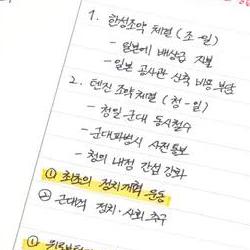 1. 한성조약 체결 (조-일)
- 일본에 배상금 지불
- 일본 공사관 신축 비용 부담
2. 텐진 조약체결 (청-일)
- 청일 군대 동시철수
- 군대파병시 사전통보
- 청의 내정 간섭 강화
① 최초의 정치개혁 운동
② 근대적 정치·사회 추구
①